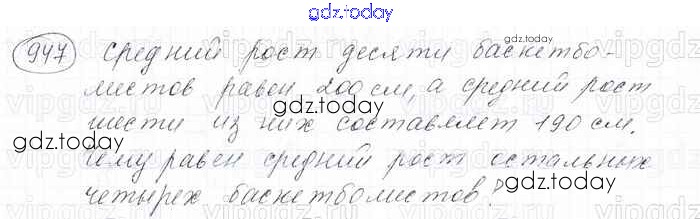 gdz.today
947 Средний рост десяти баскетбо- gdz.today
листов равен 200 см, а средний рост
gdz.today
шести из них составляет 190 см.
gdz.today
Чему равен средний рост остальных
четырех баскетболистов? gdz.today